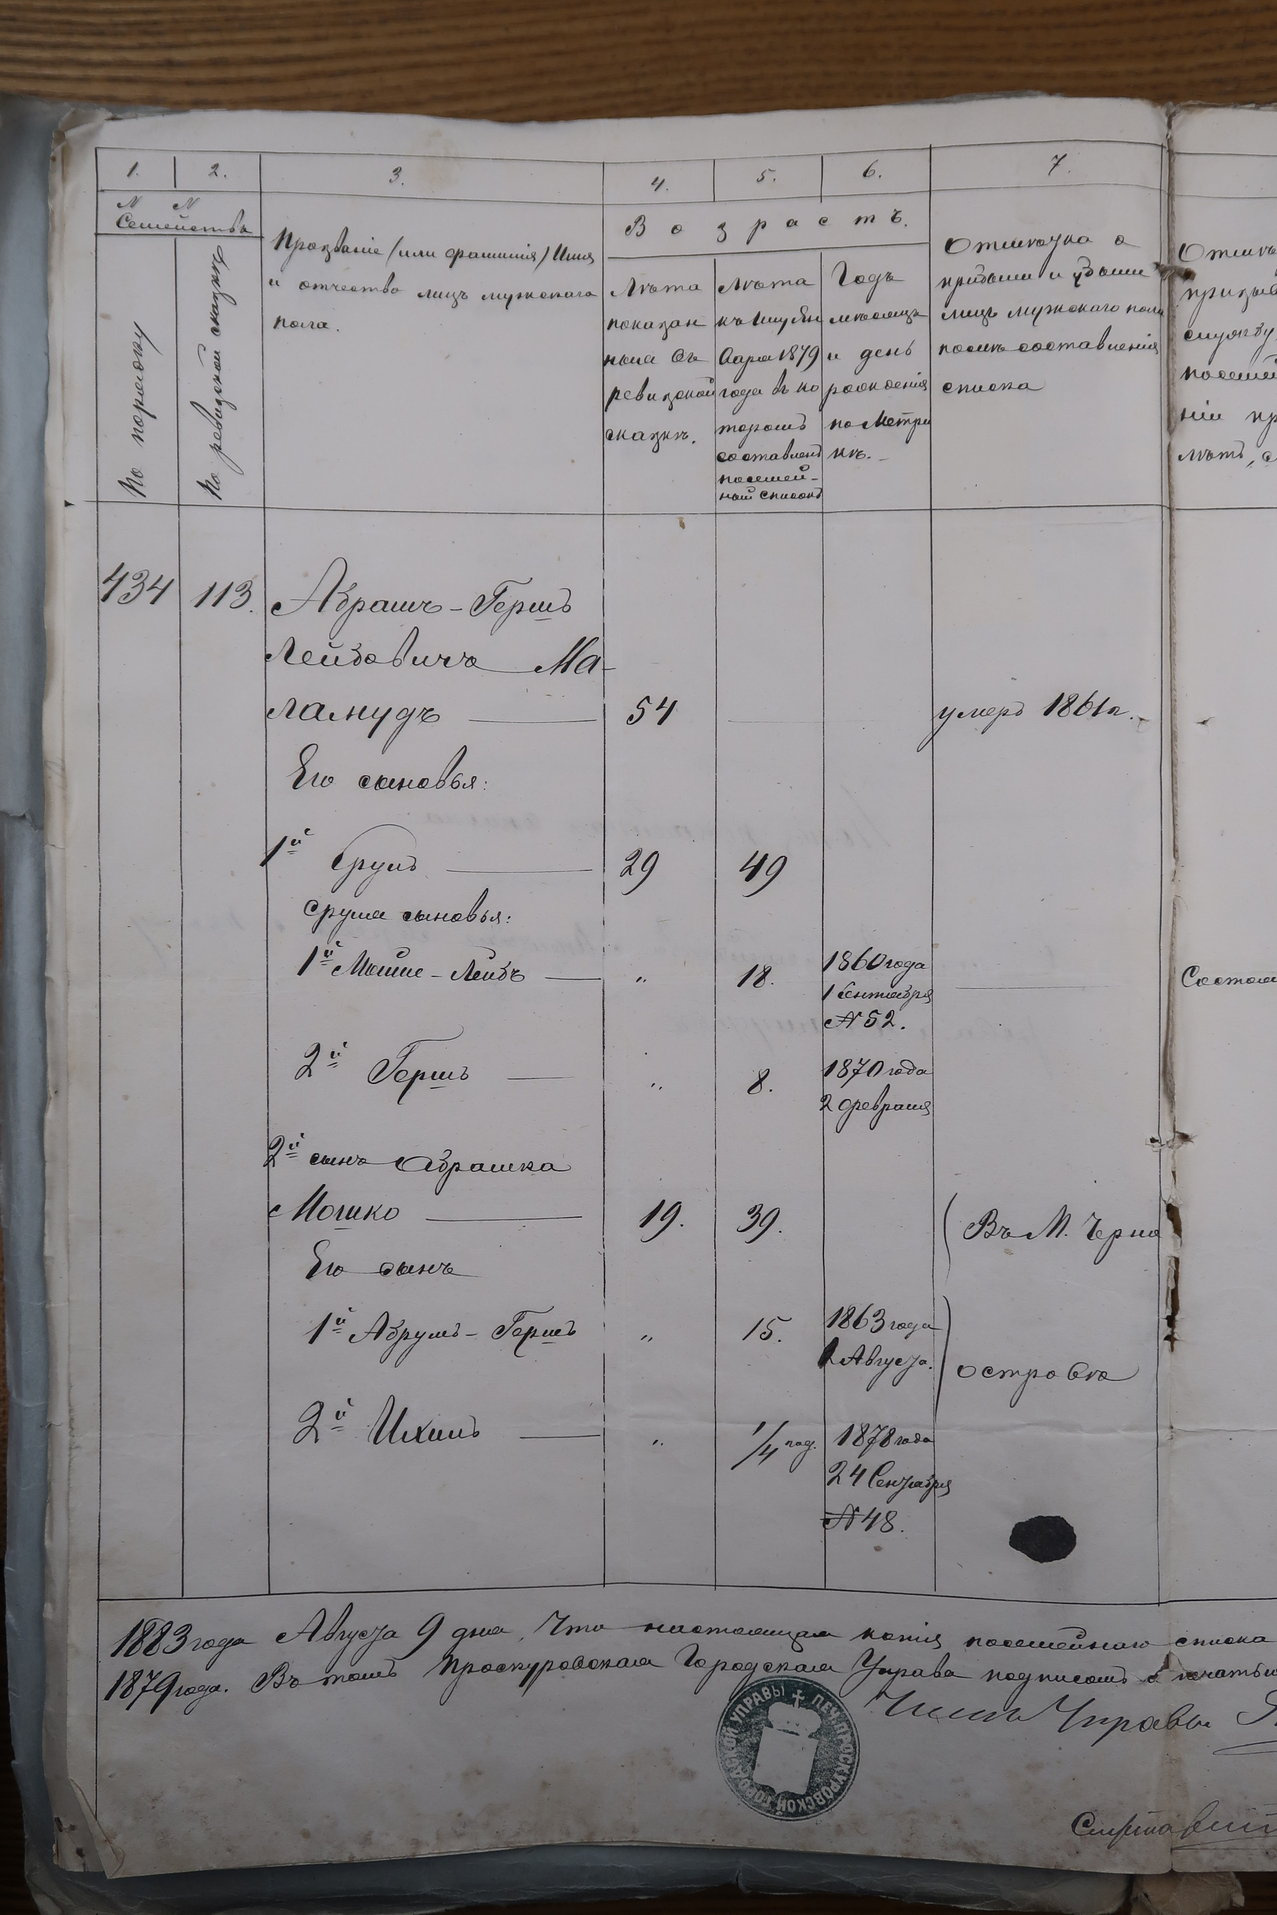 1. 2. 3. 4. 5. 6. 7.
N N
Семейства
По порядку
По ревизской сказкѣ
Прозваніе (или фамилія) Имя
и отчество лицъ мужскаго
пола.
Возрастъ.
Лѣта
показан
ныя въ
ревизской
сказкѣ.
Лѣта
къ 1му Ян
варя 1879
года въ ко
торомъ
составленъ
посемей-
ный списокъ
Годъ
мѣсяцъ
и день
рожденія
по Метри
кѣ.
Отмѣтка о
прибыли и убыли
лицъ мужскаго пола
послѣ составленія
списка
Отмѣт
призыв
службу
посемей
ніи пр
лѣтъ, с
434 113. Абрамъ-Гершъ
Лейбовичъ Ма-
ламудъ 54 умеръ 1861г.
Его сыновья:
1й Срулъ 29 49
Срула сыновья:
1й Мошко-Лейбъ " 18. 1860 года Состои
1 Сентября
№ 52.
2й Гершъ " 8. 1870 года
2 февраля
2й сынъ Абрамка
Мошко 19. 39. Въ М. Черно
Его сынъ
1й Абрумъ-Гершъ " 15. 1863 года
2 Августа. островъ
2й Ихилъ " 1/4 год. 1878 года
24 Сентября
№ 48.
1883 года Августа 9 дня, Что настоящая копія посемейнаго списка
1879 года. Въ томъ Проскуровская Городская Управа подписомъ и печатью
ПЕЧ. ПРОСКУРОВСКОЙ ГОРОДСКОЙ УПРАВЫ
Членъ Управы